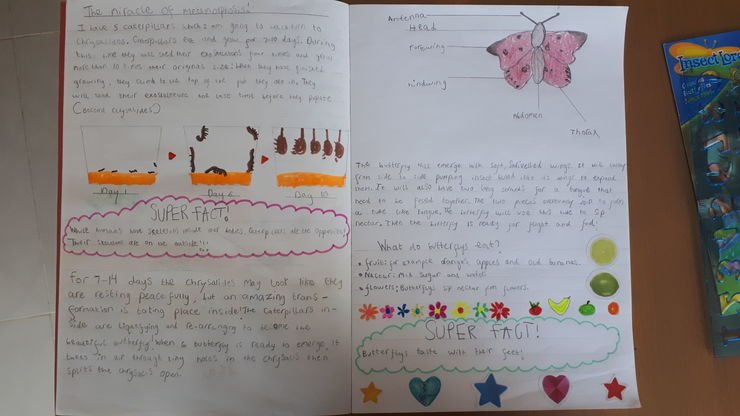 The miracle of metamorphosis!
I have 5 caterpillars which am going to watch turn to
chrysalises. Caterpillars eat and grow for 7-10 days. During
this time they will shed their exoskeletons four times and grow
more than 10 times their original size! When they have finished
growing, they climb to the top of the pot they are in. They
will shed their exoskeleton one last time before they pupate
(become crysalides)
Day 1
Day 6
Day 10
SUPER FACT!
Most humans have skeletons inside our bodies. Caterpillars are the opposite!
Their skeletons are on the outside!!!
For 7-14 days the chrysalises may look like they
are resting peacefully, but an amazing trans-
formation is taking place inside! The caterpillars in-
side are liquefying and re-arranging to become the
beautiful butterfly! When a butterfly is ready to emerge, it
takes in air through tiny holes in the chrysalis then
splits the chrysalis open.
Antenna
Head
Forewing
Hindwing
Abdomen
Thorax
The butterfly will emerge with soft, wings. It will
from side to side pumping insect blood into its wings to expand
them. It will also have two long for a tongue that
need to be fused together. The two pieces eventually join to
a tube like tongue. The butterfly will use this tube to sip
nectar. Then the butterfly is ready for flight and food!
What do butterflys eat?
• fruit: for example oranges, apples and bananas.
• Nectar: Mix sugar and water
• flowers: Butterflys sip nectar from flowers.
SUPER FACT!
Butterflys taste with their feet!
Insect Lore